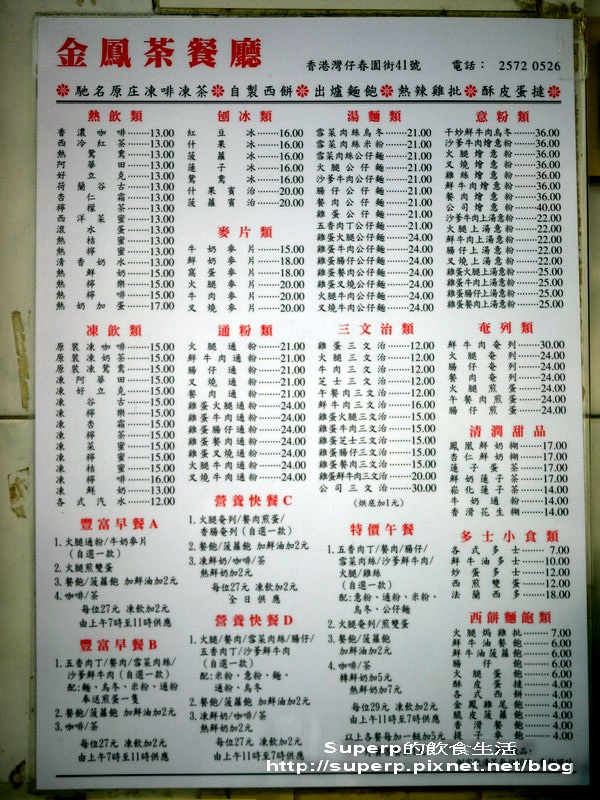 金鳳茶餐廳
香港灣仔春園街41號 電話： 2572 0526
馳名原庄凍啡凍茶 自製西餅 出爐麵飽 熱辣雞批 酥皮蛋撻
熱飲類
香濃咖啡……13.00
西冷紅茶……13.00
熱鴛鴦……13.00
阿華田……13.00
好立克……13.00
荷蘭谷古……13.00
杏仁霜……13.00
檸檬茶……13.00
西洋菜蜜……13.00
滾水蛋……13.00
熱桔蜜……13.00
熱檸蜜……13.00
清香奶水……13.00
熱鮮奶……15.00
熱檸樂……15.00
熱檸啡……15.00
熱奶加蛋……17.00
刨冰類
紅豆冰……16.00
什果冰……16.00
菠蘿冰……16.00
蓮子冰……16.00
鴛鴦冰……16.00
什果賓治……20.00
菠蘿賓治……20.00
麥片類
牛奶麥片……15.00
鮮奶麥片……18.00
窩蛋麥片……18.00
火腿麥片……20.00
牛肉麥片……20.00
叉燒麥片……20.00
湯麵類
雪菜肉絲烏冬……21.00
雪菜肉絲米粉……21.00
雪菜肉絲公仔麵……21.00
火腿公仔麵……21.00
沙爹牛肉公仔麵……21.00
腸仔公仔麵……21.00
餐肉公仔麵……21.00
雞蛋公仔麵……21.00
五香肉丁公仔麵……21.00
雞蛋火腿公仔麵……24.00
雞蛋牛肉公仔麵……24.00
雞蛋腸仔公仔麵……24.00
雞蛋餐肉公仔麵……24.00
雞蛋叉燒公仔麵……24.00
火腿牛肉公仔麵……24.00
叉燒牛肉公仔麵……24.00
意粉類
干炒鮮牛肉烏冬……36.00
沙爹牛肉燴意粉……36.00
火腿燴意粉……36.00
叉燒燴意粉……36.00
雞絲燴意粉……36.00
鮮牛肉燴意粉……36.00
餐肉燴意粉……36.00
公司燴意粉……40.00
沙爹牛肉上湯意粉……22.00
火腿上湯意粉……22.00
鮮牛肉上湯意粉……22.00
腸仔上湯意粉……22.00
叉燒上湯意粉……22.00
雞蛋火腿上湯意粉……25.00
雞蛋牛肉上湯意粉……25.00
雞蛋腸仔上湯意粉……25.00
雞蛋餐肉上湯意粉……25.00
凍飲類
原裝凍咖啡……15.00
原裝凍奶茶……15.00
原裝凍鴛鴦……15.00
凍阿華田……15.00
凍好立克……15.00
凍谷古……15.00
凍檸樂……15.00
凍杏霜……15.00
凍檸茶……15.00
凍菜蜜……15.00
凍檸蜜……15.00
凍桔蜜……15.00
凍檸啡……16.00
凍鮮奶……13.00
各式汽水……12.00
通粉類
火腿通粉……21.00
鮮牛肉通粉……21.00
腸仔通粉……21.00
叉燒通粉……21.00
餐肉通粉……21.00
雞蛋火腿通粉……24.00
雞蛋牛肉通粉……24.00
雞蛋腸仔通粉……24.00
雞蛋餐肉通粉……24.00
雞蛋叉燒通粉……24.00
火腿牛肉通粉……24.00
叉燒牛肉通粉……24.00
三文治類
雞蛋三文治……12.00
火腿三文治……12.00
牛肉三文治……12.00
芝士三文治……12.00
午餐肉三文治……12.00
鮮牛肉三文治……16.00
雞蛋火腿三文治……15.00
雞蛋牛肉三文治……15.00
雞蛋芝士三文治……15.00
雞蛋腸仔三文治……15.00
雞蛋餐肉三文治……15.00
雞蛋鮮牛肉三文治……20.00
公司三文治……30.00
（烘底加1元）
奄列類
鮮牛肉奄列……30.00
火腿奄列……24.00
腸仔奄列……24.00
餐肉奄列……24.00
火腿煎蛋……24.00
午餐肉煎蛋……24.00
腸仔煎蛋……24.00
清潤甜品
鳳凰鮮奶糊……17.00
杏仁鮮奶糊……17.00
蓮子蛋茶……17.00
鮮奶蓮子茶……17.00
崧化蓮子茶……14.00
牛奶通粉……14.00
香滑花生糊……14.00
豐富早餐A
1. 火腿通粉/牛奶麥片
（自選一款）
2. 火腿煎雙蛋
3. 餐飽/菠蘿飽 加鮮油加2元
4. 咖啡/茶
每位27元 凍飲加2元
由上午7時至11時供應
豐富早餐B
1. 五香肉丁/餐肉/雪菜肉絲/
沙爹鮮牛肉（自選一款）
配：麵、烏冬、米粉、通粉
奉送煎蛋一隻
2. 餐飽/菠蘿飽 加鮮油加2元
3. 咖啡/茶
每位27元 凍飲加2元
由上午7時至11時供應
營養快餐C
1. 火腿奄列/餐肉煎蛋/
香腸奄列（自選一款）
2. 餐飽/菠蘿飽 加鮮油加2元
3. 凍鮮奶/咖啡/茶
熱鮮奶加2元
每位27元 凍飲加2元
全日供應
營養快餐D
1. 火腿/餐肉/雪菜肉絲/腸仔/
五香肉丁/沙爹鮮牛肉
（自選一款）
配：米粉、意粉、麵、
通粉、烏冬
2. 餐飽/菠蘿飽 加鮮油加2元
3. 凍鮮奶/咖啡/茶
熱鮮奶加2元
每位27元 凍飲加2元
由上午11時至7時供應
特價午餐
1. 五香肉丁/餐肉/腸仔/
雪菜肉絲/沙爹鮮牛肉/
火腿/雞絲
（自選一款）
配：意粉、通粉、米粉、
烏冬、公仔麵
2. 火腿奄列/煎雙蛋
3. 餐飽/菠蘿飽
加鮮油加2元
4. 咖啡/茶
轉鮮奶加5元
熱鮮奶加7元
每位29元 凍飲加2元
由上午11時至7時供應
以上各餐每加一餸加5元
多士小食類
各式多士……7.00
鮮牛油多士……10.00
炒蛋多士……12.00
西煎雙蛋……12.00
法蘭西多士……18.00
西餅麵飽類
火腿焗雞批……7.00
鮮牛油餐飽……6.00
鮮牛油菠蘿飽……6.00
腸仔飽……6.00
火腿蛋飽……6.00
酥皮蛋撻……4.00
各式西餅……4.00
金鳳雞尾飽……4.00
脆皮菠蘿飽……4.00
香滑餐飽……4.00
提子麥飽……4.00
Superp的飲食生活
http://superp.pixnet.net/blog